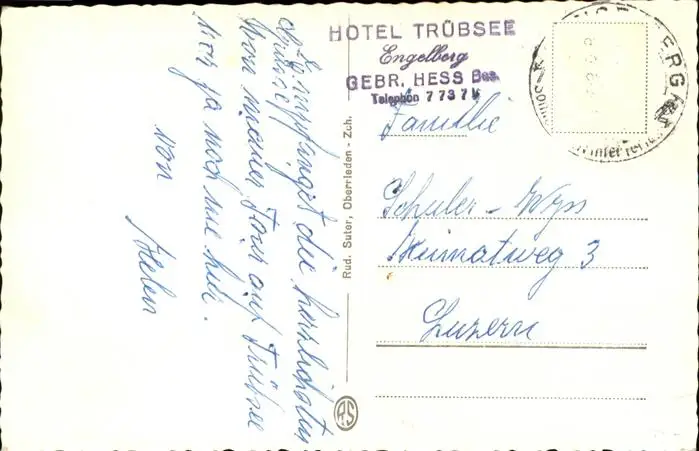 HOTEL TRÜBSEE
Engelberg
GEBR. HESS Bes.
Telephon 7 73 71
ENGELBERG
Winter
Familie
Schuler - Wyss
Heimatweg 3
Luzern
Rud. Suter, Oberrieden - Zch.
RS
Empfanget die herzlichsten
Grüsse
von meiner Tour auf Trübsee
ja noch nie hier.
von
Helen